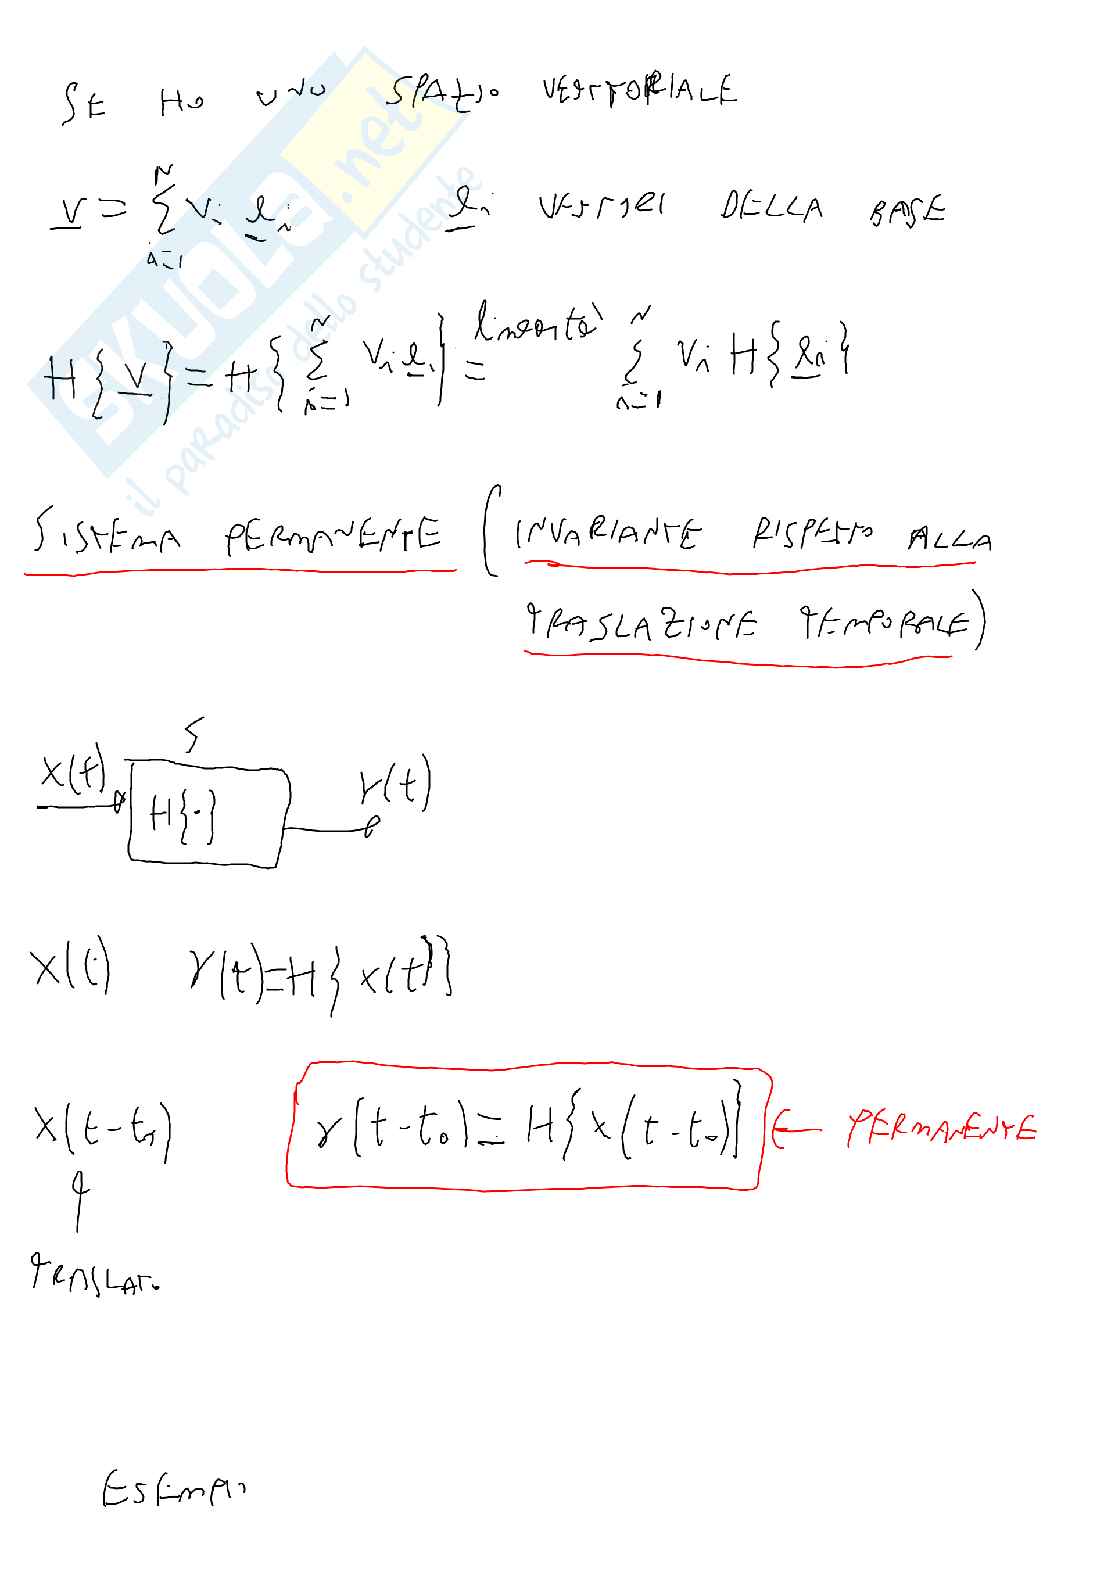 SE HO UNO SPAZIO VETTORIALE
v = Σ_{i=1}^{N} v_i e_i e_i VETTORI DELLA BASE
H{v} = H{Σ_{i=1}^{N} v_i e_i} = linearità Σ_{i=1}^{N} v_i H{e_i}
SISTEMA PERMANENTE (INVARIANTE RISPETTO ALLA
TRASLAZIONE TEMPORALE)
S
x(t) H{·} y(t)
x(t) y(t)=H{x(t)}
x(t-t₀) y(t-t₀)=H{x(t-t₀)} ← PERMANENTE
TRASLATO
ESEMPIO
SKUOLA.net
il paradiso dello studente